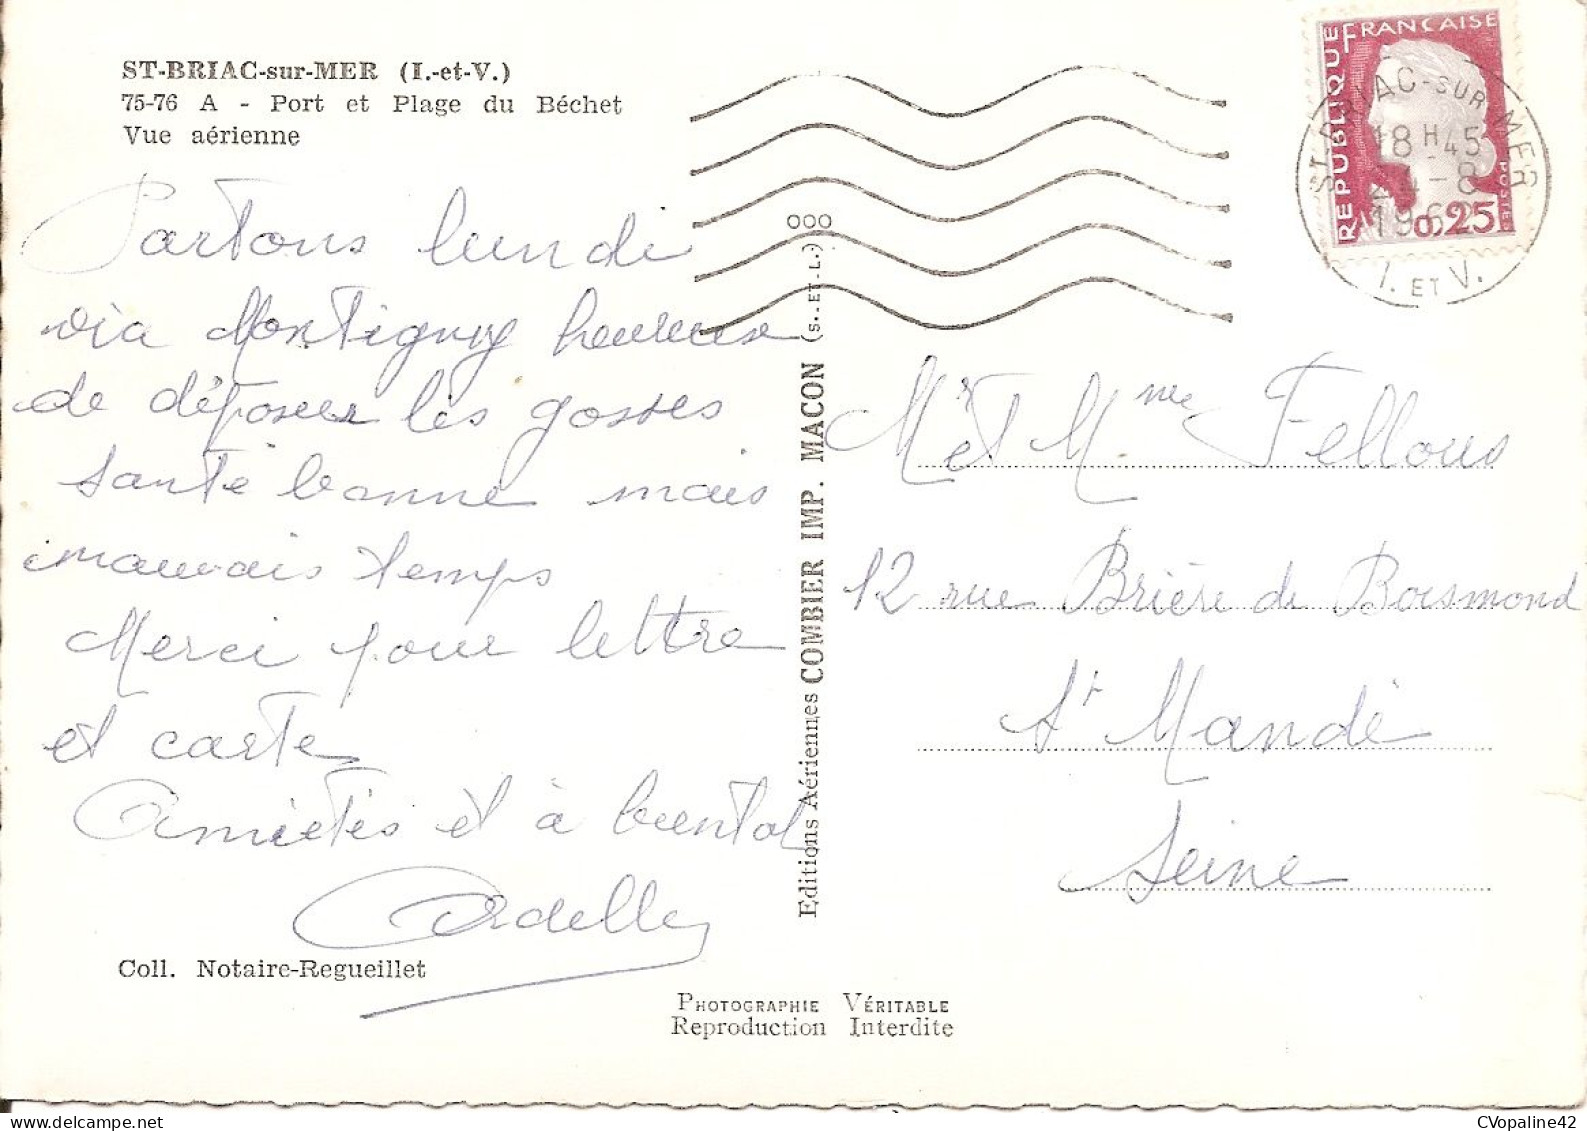 ST-BRIAC-sur-MER (I.-et-V.)
75-76 A - Port et Plage du Béchet
Vue aérienne
Partons lundi
via Montigny heureux
de déposer les gosses
Santé bonne mais
mauvais temps
Merci pour lettre
et carte
Amitiés et à bientot
Coll. Notaire-Regueillet
Editions Aériennes COMBIER IMP. MACON (S.-ET-L.)
PHOTOGRAPHIE VÉRITABLE
Reproduction Interdite
RÉPUBLIQUE FRANÇAISE
POSTES
0,25
ST-BRIAC-SUR-MER
18H45
-8
196
I. ET V.
000
Mr et Mme Fellous
12 rue Brière de Boismond
St Mandé
Seine
CVopaline42